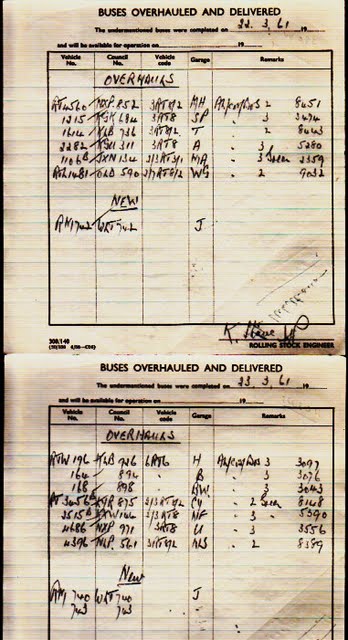 BUSES OVERHAULED AND DELIVERED
The undermentioned buses were completed on 22.3.61 19
and will be available for operation on 19
Vehicle No. Council No. Vehicle code Garage Remarks
OVERHAULS
RT4560 NXP 852 3RT8/2 MH 2 8451
1215 KGK 3RT8 SP 3 3474
1614 KLB 736 3RT8/2 T 2 8443
2282 KGU 311 3RT8 A 3 5280
1106 JXN 134 2/3RT3/1 MA 3 Green 2359
RTL1481 OLD 590 2/7RT8/2 WG 2 9032
NEW
RM742 WLT 742 J
300/140
ROLLING STOCK ENGINEER
BUSES OVERHAULED AND DELIVERED
The undermentioned buses were completed on 23.3.61 19
and will be available for operation on 19
Vehicle No. Council No. Vehicle code Garage Remarks
OVERHAULS
RTW 196 KLB 926 6RT6 H 3 3097
164 894 " B " 3 3076
168 898 " " 3 3043
RT3456 LYR 875 2/3RT8/2 2 Green 8148
3515 LYW 144 2/3RT8 NF " 3 5390
4686 NXP 971 3RT8 U " 3 3556
4396 NLP 561 3/RT8/2 NS " 2 8389
New
RM 740 WLT 740 J
743 743